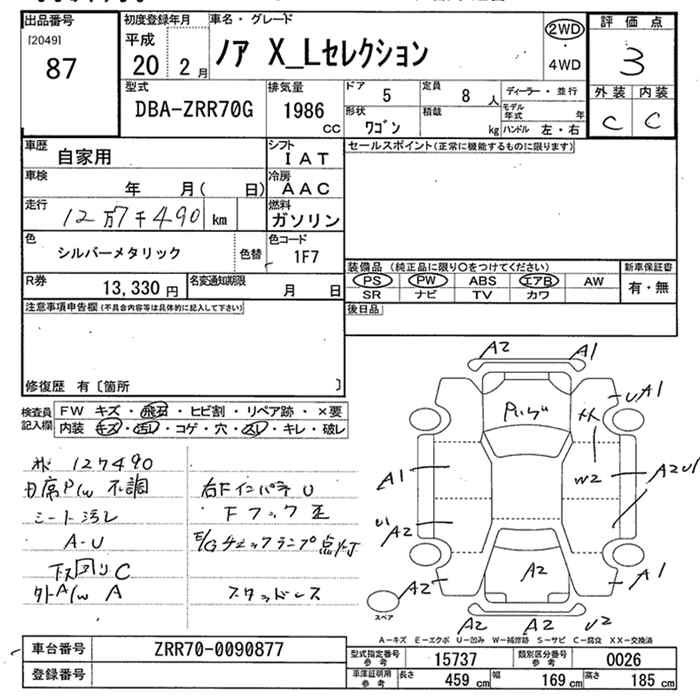 出品番号
[2049]
87
初度登録年月
平成
20 2 月
車名・グレード
ノア X_Lセレクション
2WD
・
4WD
評価点
3
外装 内装
C C
型式
DBA-ZRR70G
排気量
1986
CC
ドア
5
定員
8 人
形状
ワゴン
積載
kg
ディーラー・並行
モデル年式 年
ハンドル 左・右
車歴
自家用
シフト
IAT
車検
年 月( 日)
冷房
AAC
走行
12万7千490 km
燃料
ガソリン
色
シルバーメタリック
色替
色コード
1F7
R券
13,330 円
名変通知期限
月 日
セールスポイント(正常に機能するものに限ります)
装備品 (純正品に限り〇をつけてください)
PS PW ABS エアB AW
SR ナビ TV カワ
新車保証書
有・無
後日品
注意事項申告欄(不具合内容等は具体的に記入して下さい)
修復歴 有〔箇所 〕
検査員記入欄
FW キズ・飛石・ヒビ割・リペア跡・×要
内装 キズ・汚レ・コゲ・穴・スレ・キレ・破レ
127490
P/W 不調
シート汚レ
A-U
C
A
右Fインパネ U
Fフック 歪
E/Gチェックランプ点灯
スタッドレス
A2 A1
UA1
A1
W2
A2U1
U1
A2
A2
A2
A1
A2 A2 U2
スペア
A-キズ E-エクボ U-凹み W-補修跡 S-サビ C-腐食 XX-交換済
車台番号 ZRR70-0090877
登録番号
型式指定番号 参考 15737
類別区分番号 参考 0026
車庫証明用 参考 長さ 459 cm 幅 169 cm 高さ 185 cm